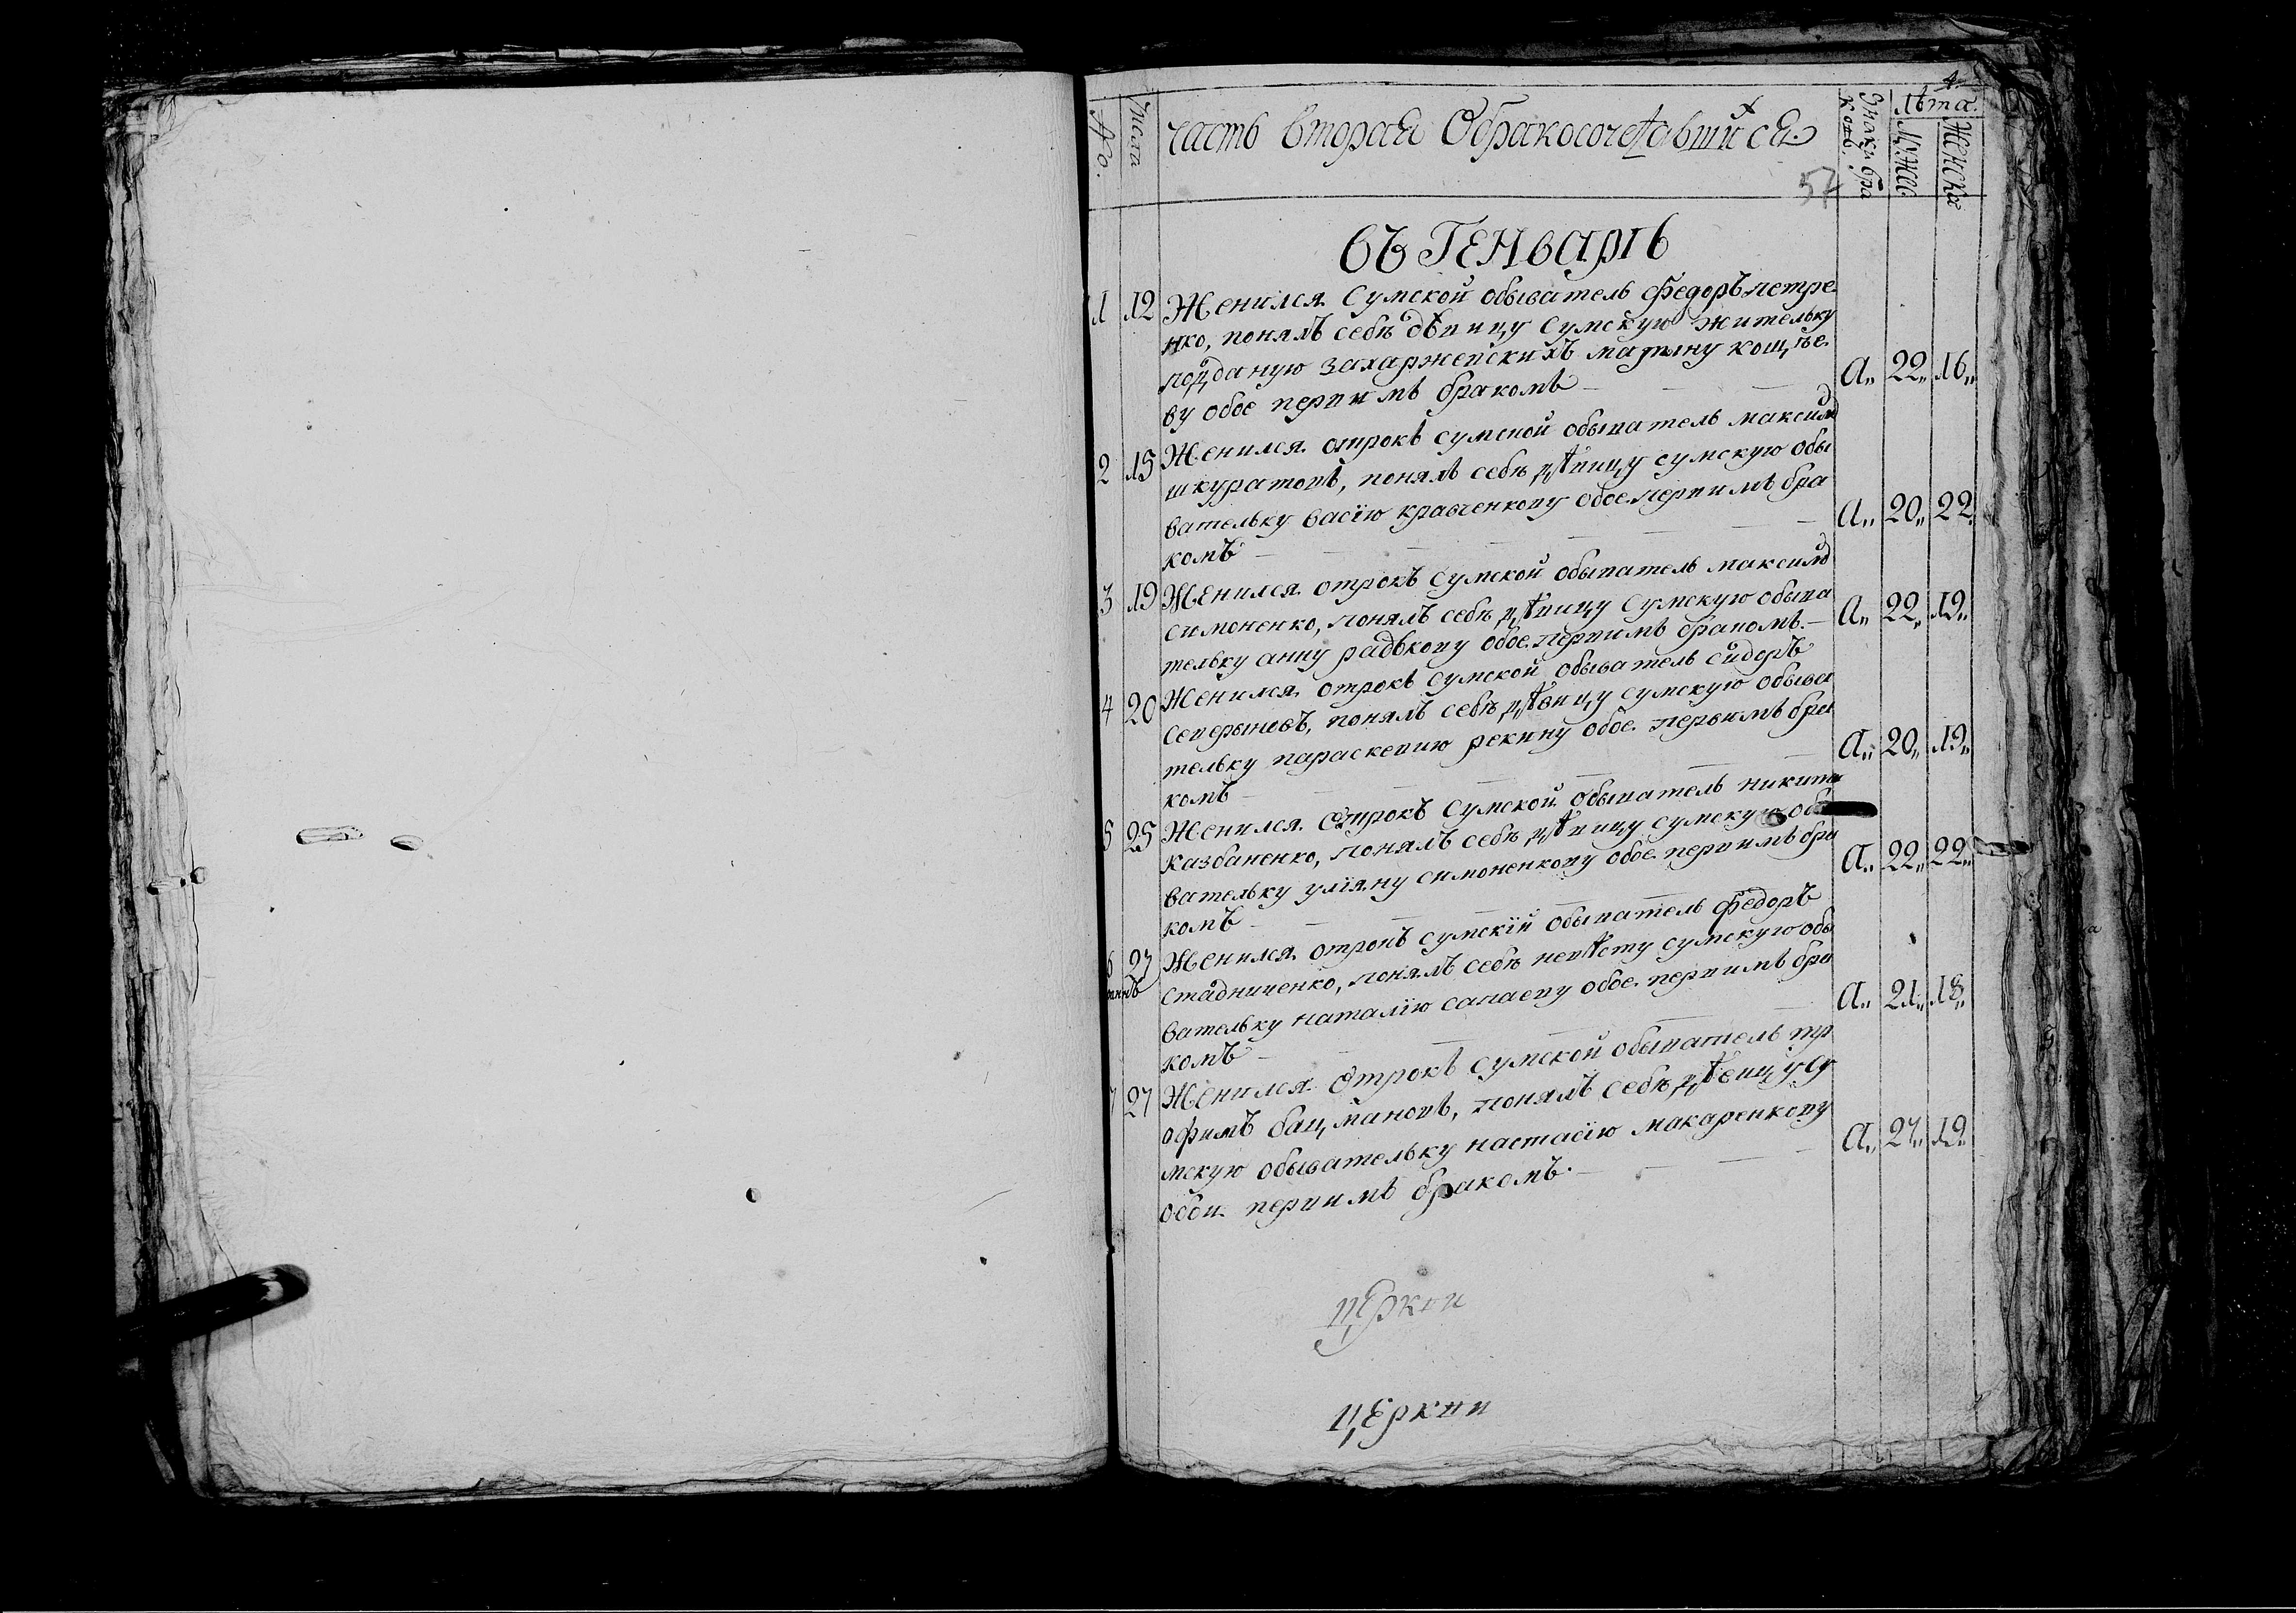 4.
№. Числа Часть вторая Обракосочетавшихся Знаки бра Лѣта.
ковъ. Мужес. Женска
57
въ Генварѣ
1 12 Женился Сумской обыватель Федоръ петре
нко, понялъ себѣ дѣвицу Сумскую жительку
подданую захаржевскихъ
ву обое первимъ бракомъ А„ 22„ 16„
2 15 Женился отрокъ сумской обыватель максимъ
шкуратовъ, понялъ себѣ дѣвицу сумскую обы
вательку васїю кравченкову обое первимъ бра А„ 20„ 22„
комъ
3 19 Женился отрокъ Сумской обыватель максимъ
симоненко, понялъ себѣ дѣвицу Сумскую обыва А„ 22„ 19„
тельку анну радькову обое первимъ бракомъ
4 20 Женился отрокъ Сумской обыватель сидоръ
понялъ себѣ дѣвицу сумскую обыва
тельку параскевию рекину обое первимъ бра А„ 20„ 19„
комъ
5 25 Женился отрокъ Сумской обыватель никита
казбаненко, понялъ себѣ дѣвицу сумскую обы
вательку улїяну симоненкову обое первимъ бра А„ 22„ 22„
комъ
6 27 Женился отрокъ сумскїй обыватель федоръ
стадниченко, понялъ себѣ невѣсту сумскую обы
вательку наталїю сапаеву обое первимъ бра А„ 21„ 18„
комъ
7 27 Женился отрокъ Сумской обыватель тр
офимъ бацмановъ, понялъ себѣ дѣвицу су
мскую обывательку настасїю макаренкову А„ 27„ 19„
обои первимъ бракомъ.
церкви
церкви